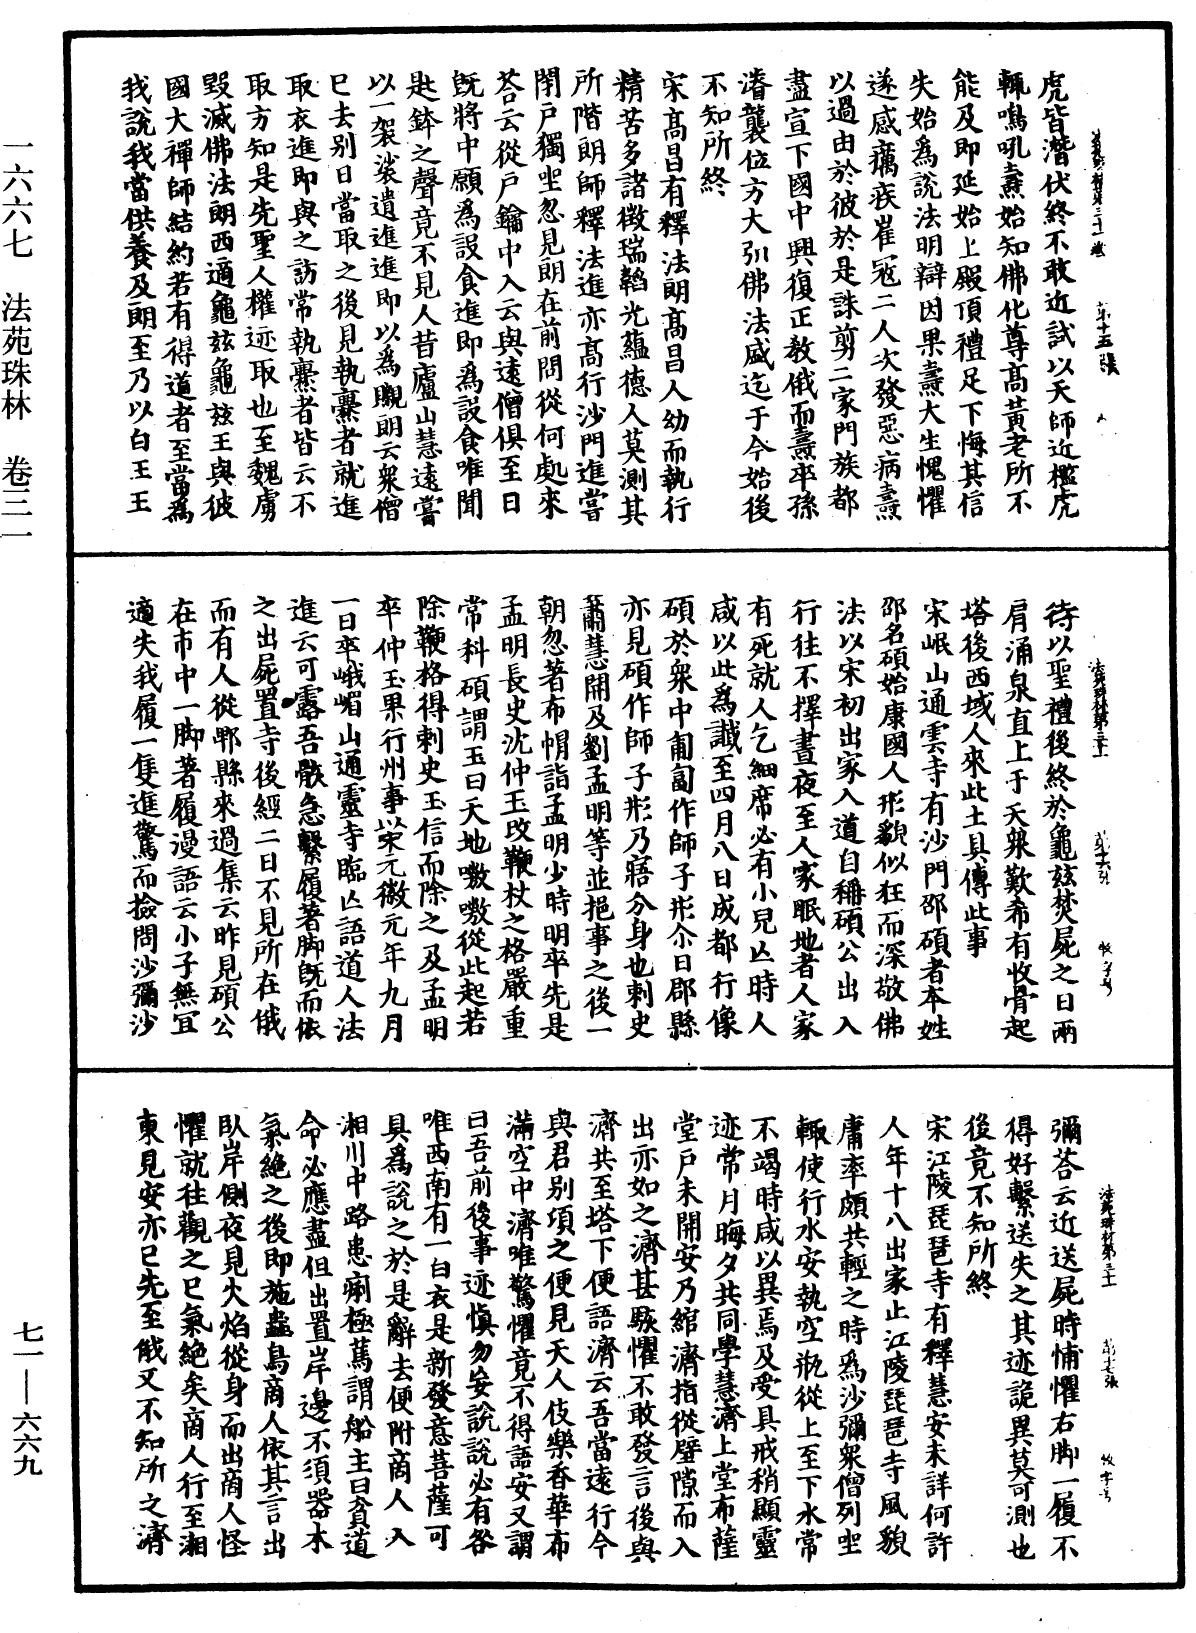 虎皆潛伏終不敢近試以天師近檻虎
輒鳴吼燾始知佛化尊高黃老所不
能及即延始上殿頂禮足下悔其信
失始為說法明辯因果燾大生愧懼
遂感癘疾崔寇二人次發惡病燾
以過由於彼於是誅剪二家門族都
盡宣下國中興復正教俄而燾卒孫
濬襲位方大弘佛法盛迄于今始後
不知所終
宋高昌有釋法朗高昌人幼而執行
精苦多諸徵瑞韜光蘊德人莫測其
所階朗師釋法進亦高行沙門進嘗
閉戶獨坐忽見朗在前問從何處來
荅云從戶鑰中入云與遠僧俱至日
既將中願為設食進即為設食唯聞
匙鉢之聲竟不見人昔廬山慧遠嘗
以一袈裟遺進進即以為䞋朗云衆僧
已去別日當取之後見執爨者就進
取衣進即與之訪常執爨者皆云不
取方知是先聖人權迹取也至魏虜
毀滅佛法朗西適龜茲龜茲王與彼
國大禪師結約若有得道者至當為
我說我當供養及朗至乃以白王王
待以聖禮後終於龜茲焚屍之日兩
肩涌泉直上于天衆歎希有收骨起
塔後西域人來此土具傳此事
宋岷山通雲寺有沙門邵碩者本姓
邵名碩始康國人形貌似狂而深敬佛
法以宋初出家入道自稱碩公出入
行往不擇晝夜至人家眠地者人家
有死就人乞細席必有小兒亡時人
咸以此為讖至四月八日成都行像
碩於衆中匍匐作師子形尒日郡縣
亦見碩作師子形乃寤分身也刺史
蕭慧開及劉孟明等並挹事之後一
朝忽著布帽詣孟明少時明卒先是
孟明長史沈仲玉改鞭杖之格嚴重
常科碩謂玉曰天地嗷嗷從此起若
除鞭格得刺史玉信而除之及孟明
卒仲玉果行州事以宋元徽元年九月
一日卒峨嵋山通靈寺臨亡語道人法
進云可露吾骸急繫履著脚既而依
之出屍置寺後經二日不見所在俄
而有人從郫縣來過集云昨見碩公
在市中一脚著履漫語云小子無宜
適失我履一隻進驚而撿問沙彌沙
彌荅云近送屍時怖懼右脚一履不
得好繫送失之其迹詭異莫可測也
後竟不知所終
宋江陵琵琶寺有釋慧安未詳何許
人年十八出家止江陵琵琶寺風貌
庸率頗共輕之時為沙彌衆僧列坐
輒使行水安執空瓶從上至下水常
不竭時咸以異焉及受具戒稍顯靈
迹常月晦夕共同學慧濟上堂布薩
堂戶未開安乃綰濟指從壁隙而入
出亦如之濟甚駭懼不敢發言後與
濟共至塔下便語濟云吾當遠行今
與君別頃之便見天人伎樂香華布
滿空中濟唯驚懼竟不得語安又謂
曰吾前後事迹慎勿妄說說必有咎
唯西南有一白衣是新發意菩薩可
具為說之於是辭去便附商人入
湘川中路患痢極篤謂船主曰貧道
命必應盡但出置岸邊不須器木
氣絕之後即施蟲鳥商人依其言出
臥岸側夜見火焰從身而出商人怪
懼就往觀之已氣絕矣商人行至湘
東見安亦已先至俄又不知所之濟
一六六七　法苑珠林　卷三一
七一—六六九